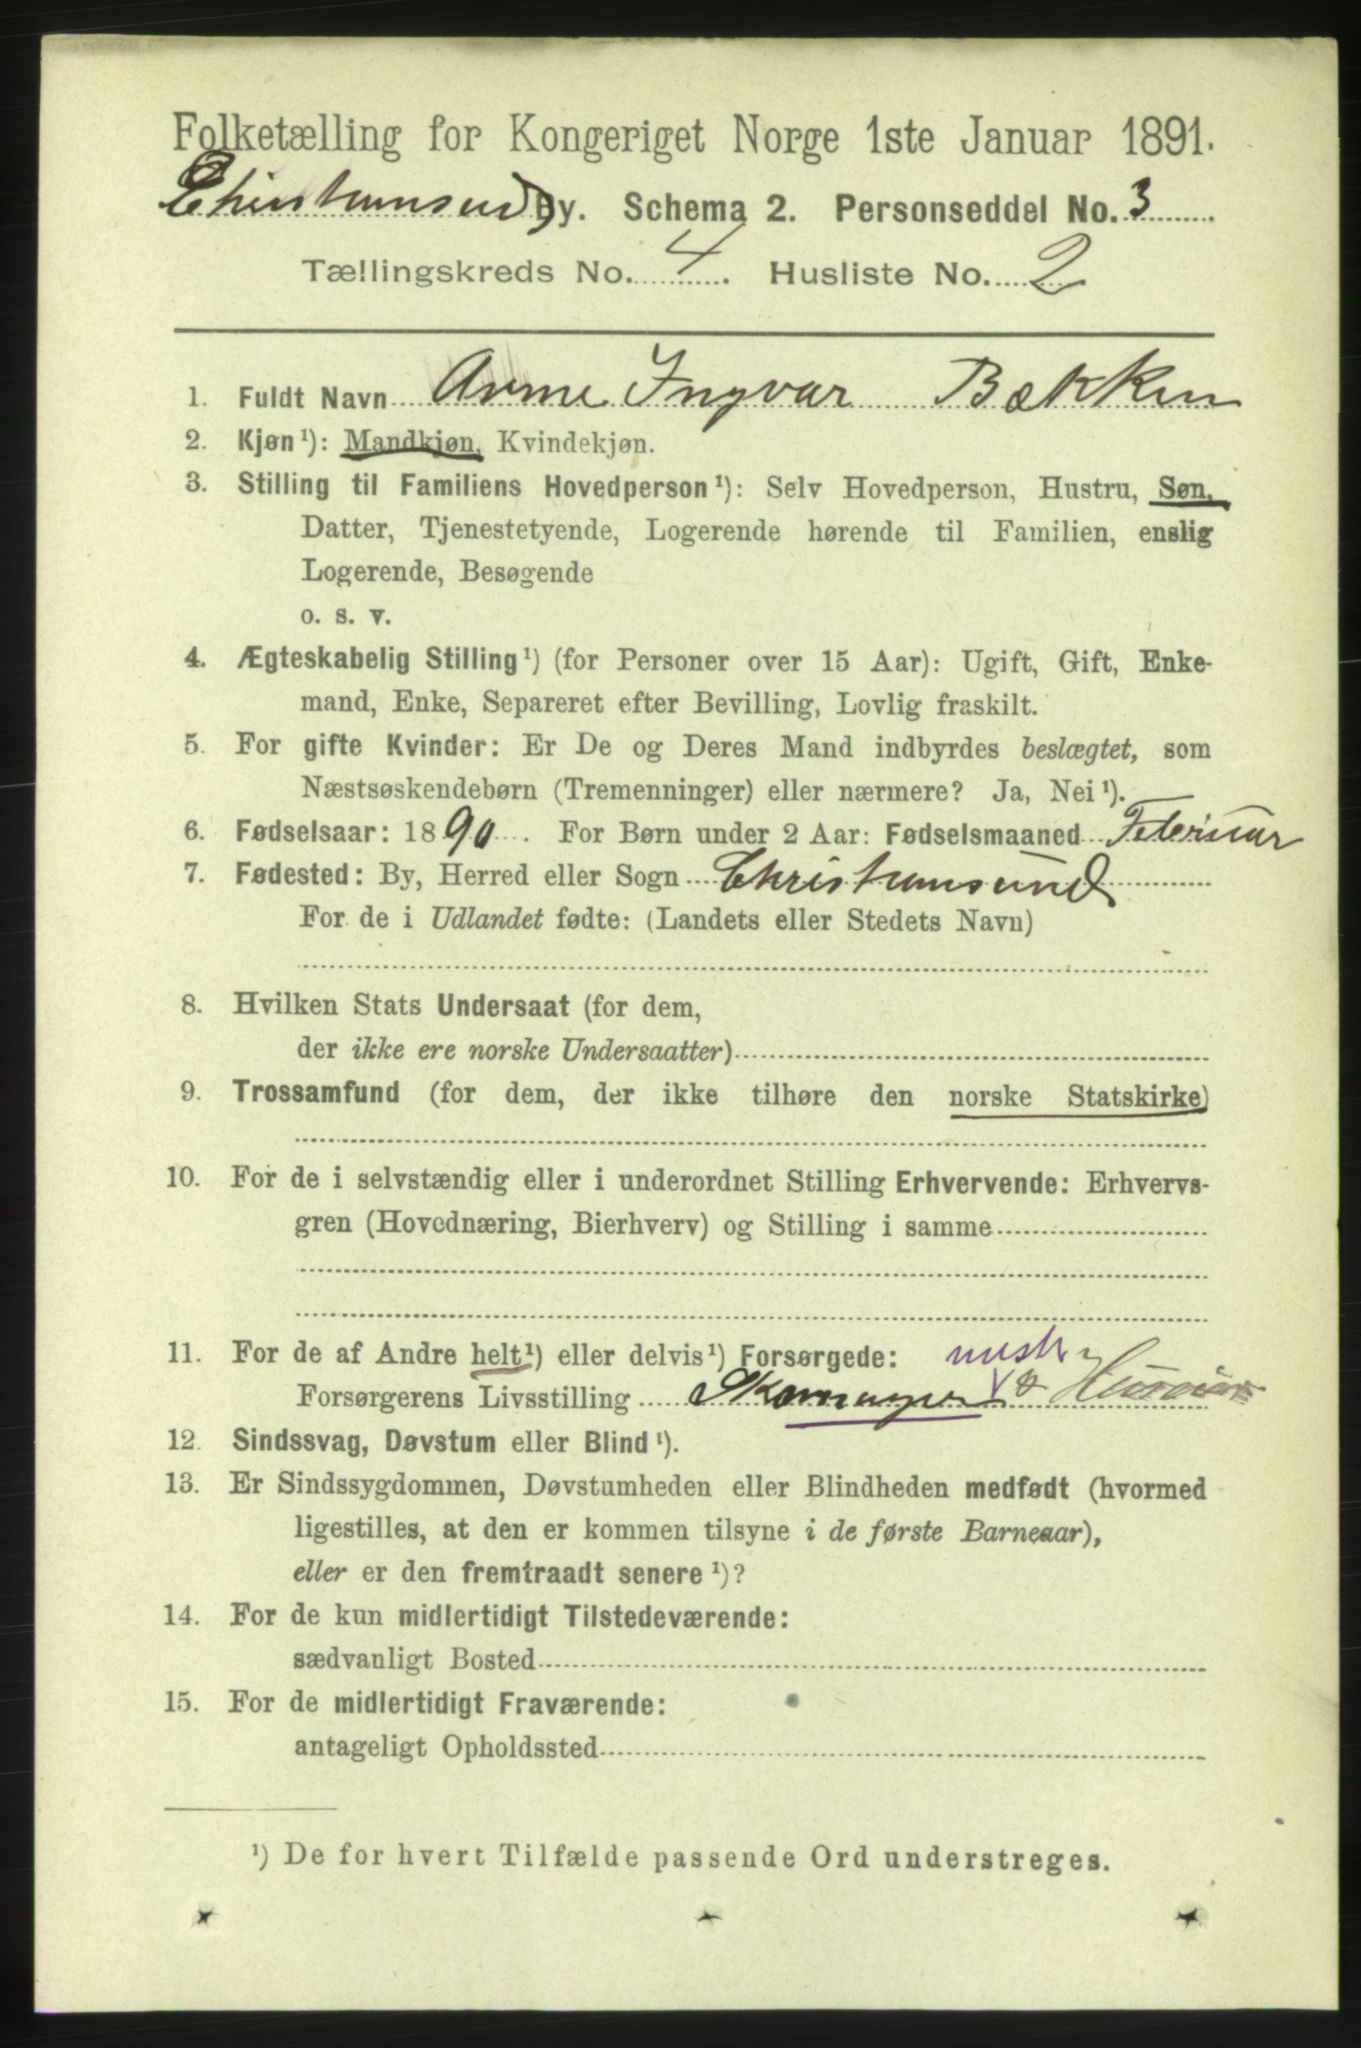 Folketælling for Kongeriget Norge 1ste Januar 1891.
Christiansund By. Schema 2. Personseddel No. 3
Tællingskreds No. 4. Husliste No. 2
1. Fuldt Navn Arne Ingvar Bækken
2. Kjøn¹): Mandkjøn, Kvindekjøn.
3. Stilling til Familiens Hovedperson¹): Selv Hovedperson, Hustru, Søn,
Datter, Tjenestetyende, Logerende hørende til Familien, enslig
Logerende, Besøgende
o. s. v.
4. Ægteskabelig Stilling¹) (for Personer over 15 Aar): Ugift, Gift, Enke-
mand, Enke, Separeret efter Bevilling, Lovlig fraskilt.
5. For gifte Kvinder: Er De og Deres Mand indbyrdes beslægtet, som
Næstsøskendebørn (Tremenninger) eller nærmere? Ja, Nei¹).
6. Fødselsaar: 1890. For Børn under 2 Aar: Fødselsmaaned Februar
7. Fødested: By, Herred eller Sogn Christiansund
For de i Udlandet fødte: (Landets eller Stedets Navn)
8. Hvilken Stats Undersaat (for dem,
der ikke ere norske Undersaatter)
9. Trossamfund (for dem, der ikke tilhøre den norske Statskirke)
10. For de i selvstændig eller i underordnet Stilling Erhvervende: Erhvervs-
gren (Hovednæring, Bierhverv) og Stilling i samme
11. For de af Andre helt¹) eller delvis¹) Forsørgede:
Forsørgerens Livsstilling Skomager
12. Sindssvag, Døvstum eller Blind¹).
13. Er Sindssygdommen, Døvstumheden eller Blindheden medfødt (hvormed
ligestilles, at den er kommen tilsyne i de første Barneaar),
eller er den fremtraadt senere¹)?
14. For de kun midlertidigt Tilstedeværende:
sædvanligt Bosted
15. For de midlertidigt Fraværende:
antageligt Opholdssted
¹) De for hvert Tilfælde passende Ord understreges.